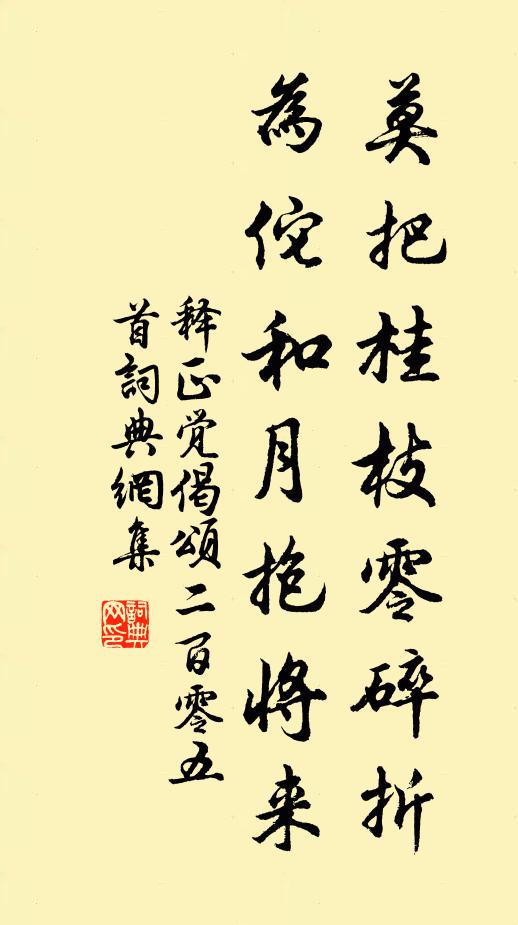 莫把桂枝零碎折
為侘和月抱將来
释正觉偈頌二百零五
首詞典網集
詞典
网印